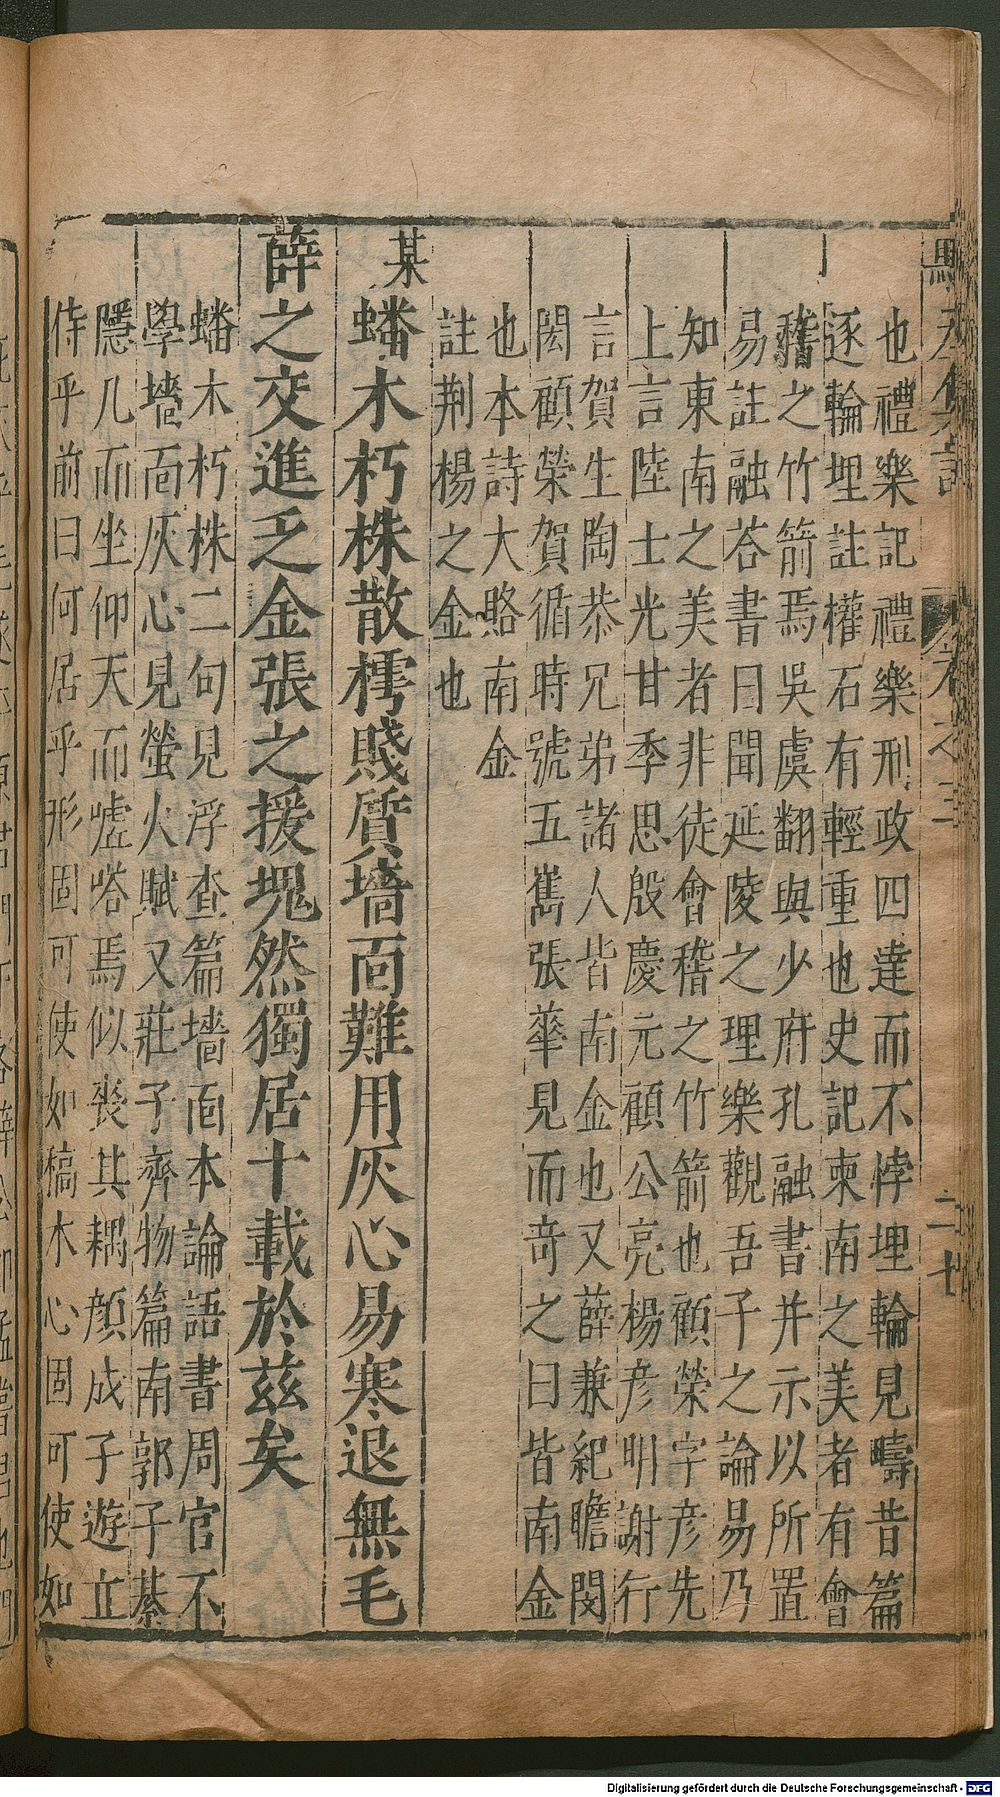 也禮樂記禮樂刑政四達而不悖埋輪見疇昔篇
逐輪埋註權石有輕重也史記東南之美者有會
稽之竹箭焉吳虞翻與少府孔融書并示以所置
易註融荅書曰聞延陵之理樂觀吾子之論易乃
知東南之美者非徒會稽之竹箭也顧榮字彦先
上言陸士光甘季思殷慶元顧公亮楊彦明謝行
言賀生陶恭兄弟諸人皆南金也又薛兼紀瞻閔
閎顧榮賀循時號五雋張華見而竒之曰皆南金
也本詩大賂南金
註荆楊之金也
某蟠木朽株散樗賤質墻面難用灰心易寒退無毛
薛之交進乏金張之援塊然獨居十載於茲矣
蟠木朽株二句見浮查篇墻面本論語書周官不
學墻面灰心見螢火賦又莊子齊物篇南郭子綦
隱几而坐仰天而嘘嗒焉似喪其耦顔成子遊立
侍乎前曰何居乎形固可使如稿木心固可使如
卷之三
二十七
Digitalisierung gefördert durch die Deutsche Forschungsgemeinschaft - DFG